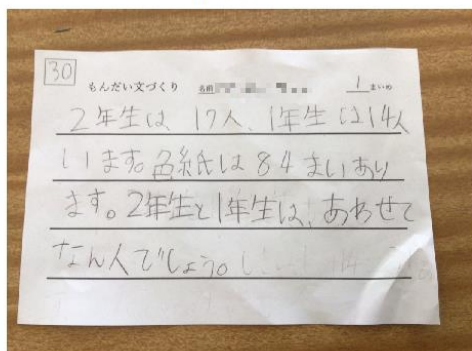 30
もんだい文づくり 名前 1 まいめ
2年生は 17人、1年生は14人
います。色紙は84まいあり
ます。2年生と1年生は、あわせて
なん人でしょう。